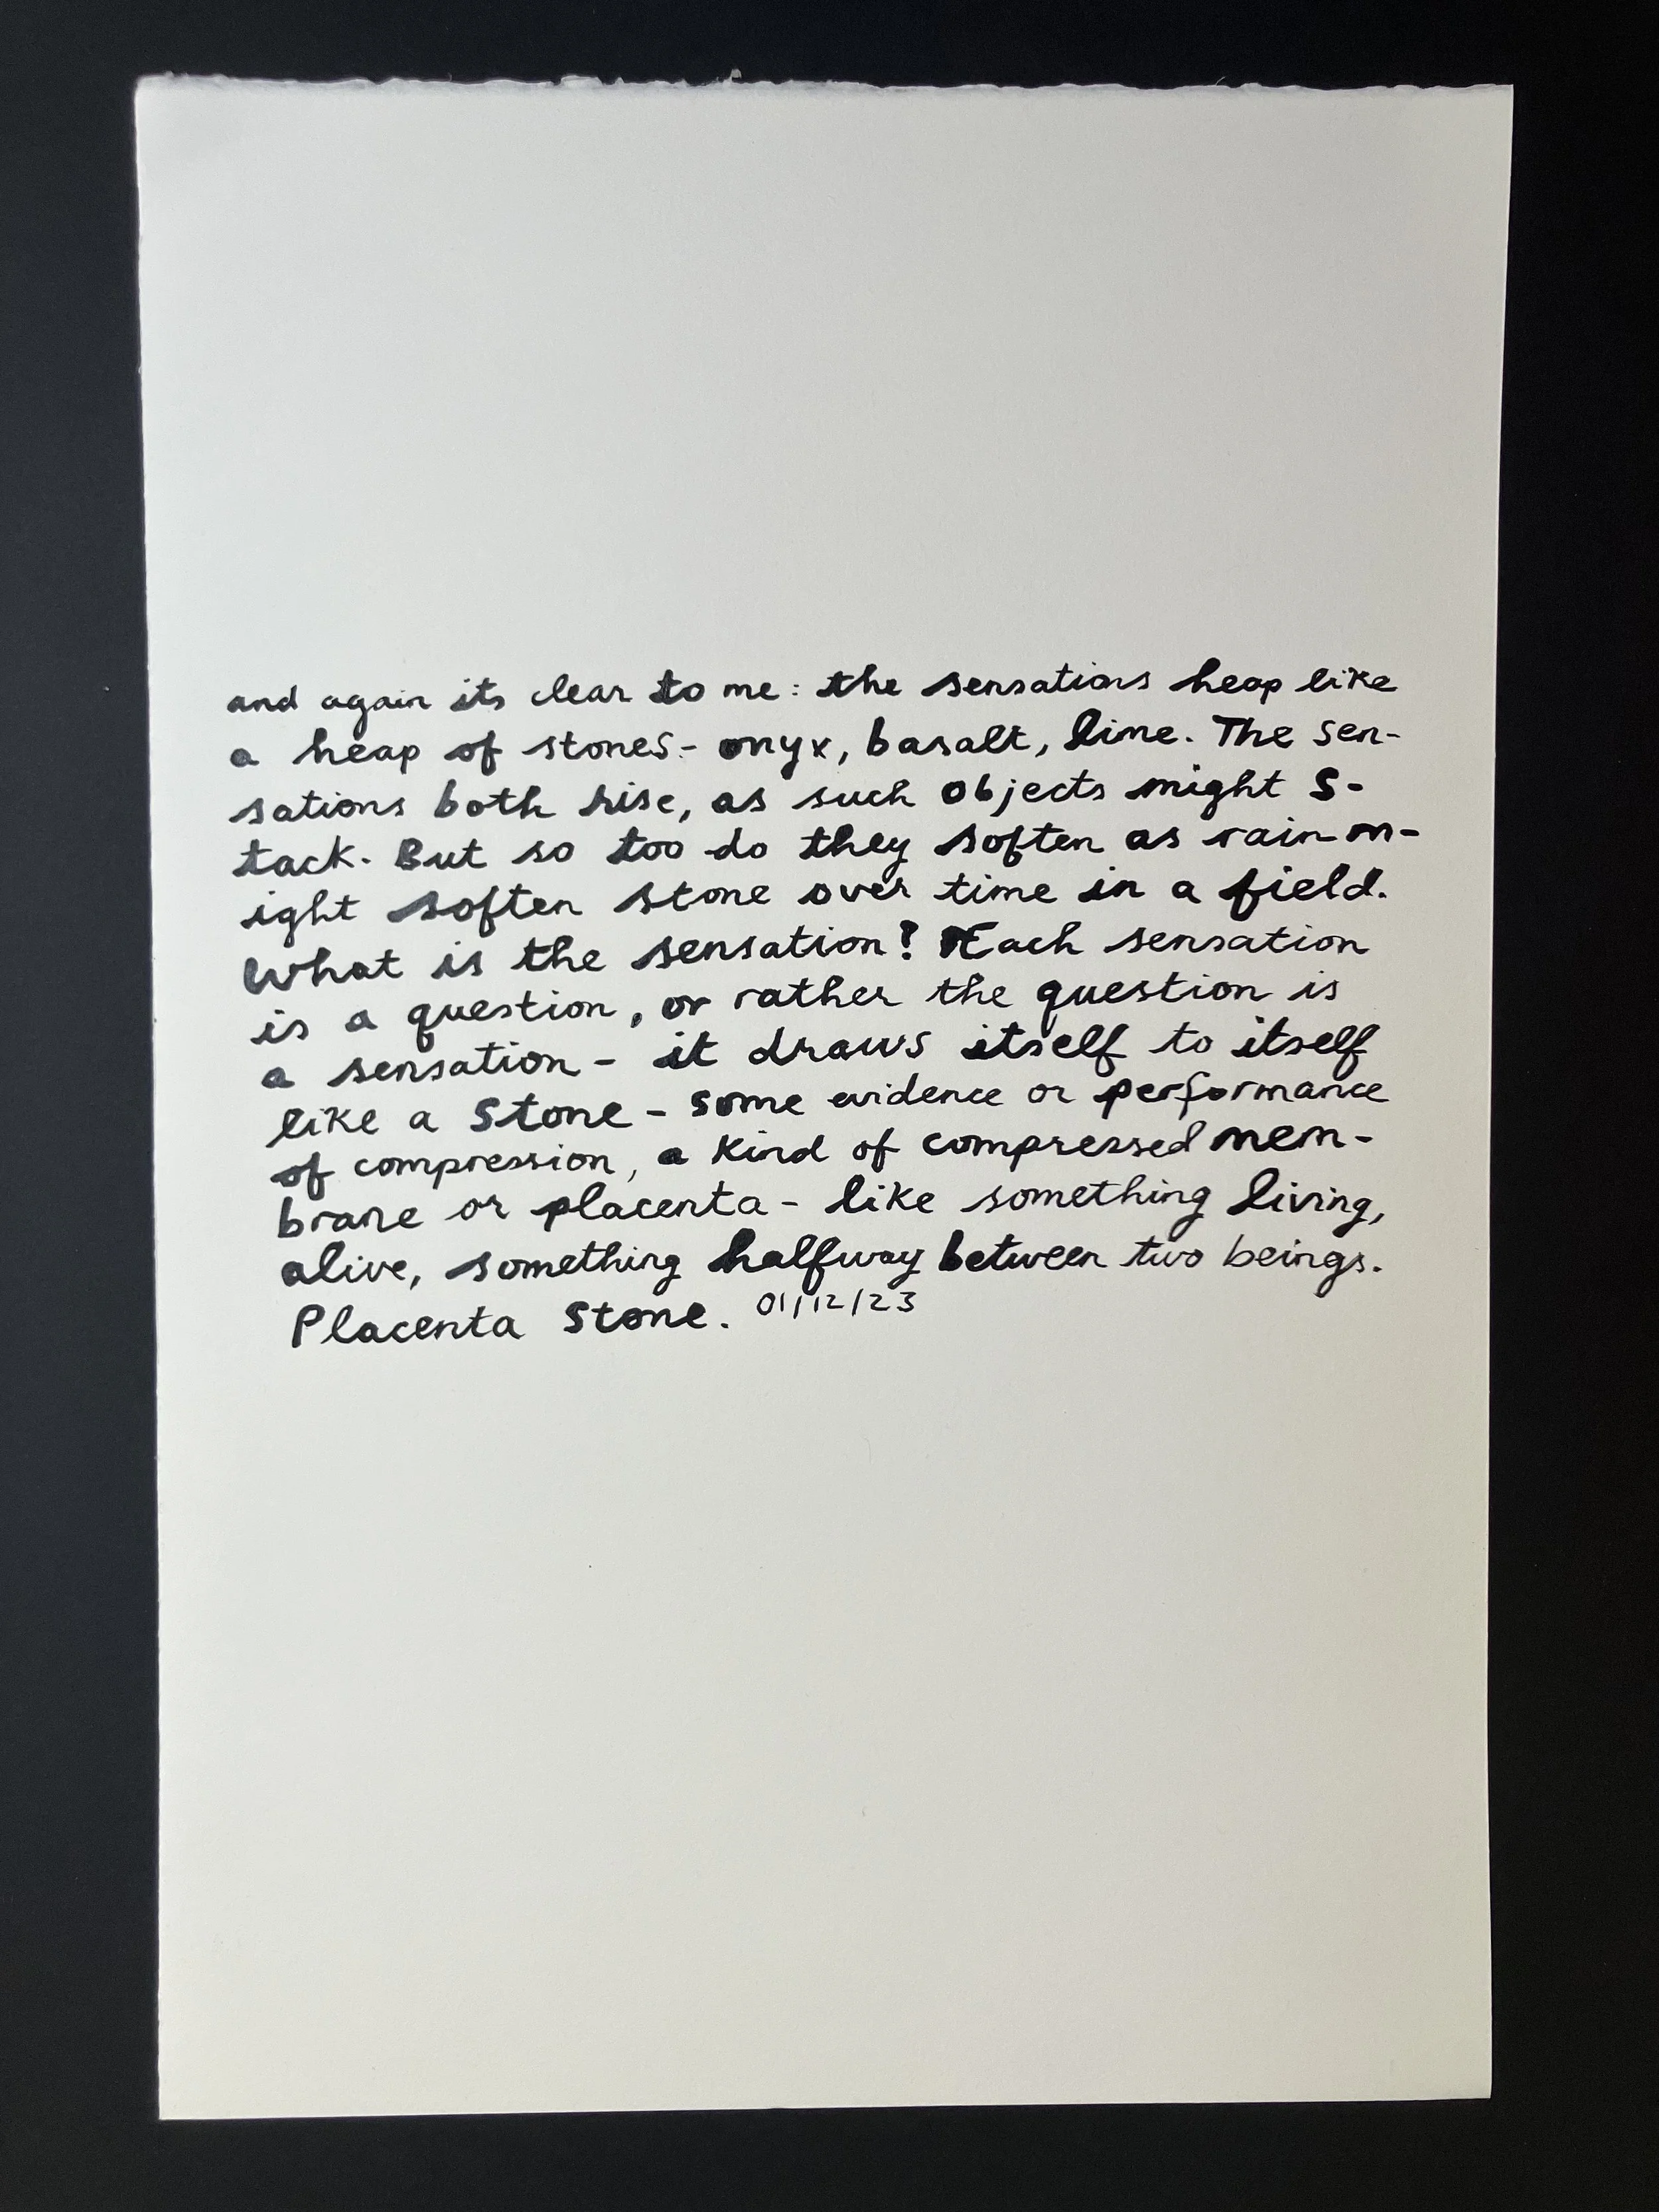 and again its clear to me: the sensations heap like
a heap of stones - onyx, basalt, lime. The sen-
sations both rise, as such objects might s-
tack. But so too do they soften as rain m-
ight soften stone over time in a field.
What is the sensation? Each sensation
is a question, or rather the question is
a sensation - it draws itself to itself
like a stone - some evidence or performance
of compression, a kind of compressed mem-
brane or placenta - like something living,
alive, something halfway between two beings.
Placenta Stone. 01/12/23